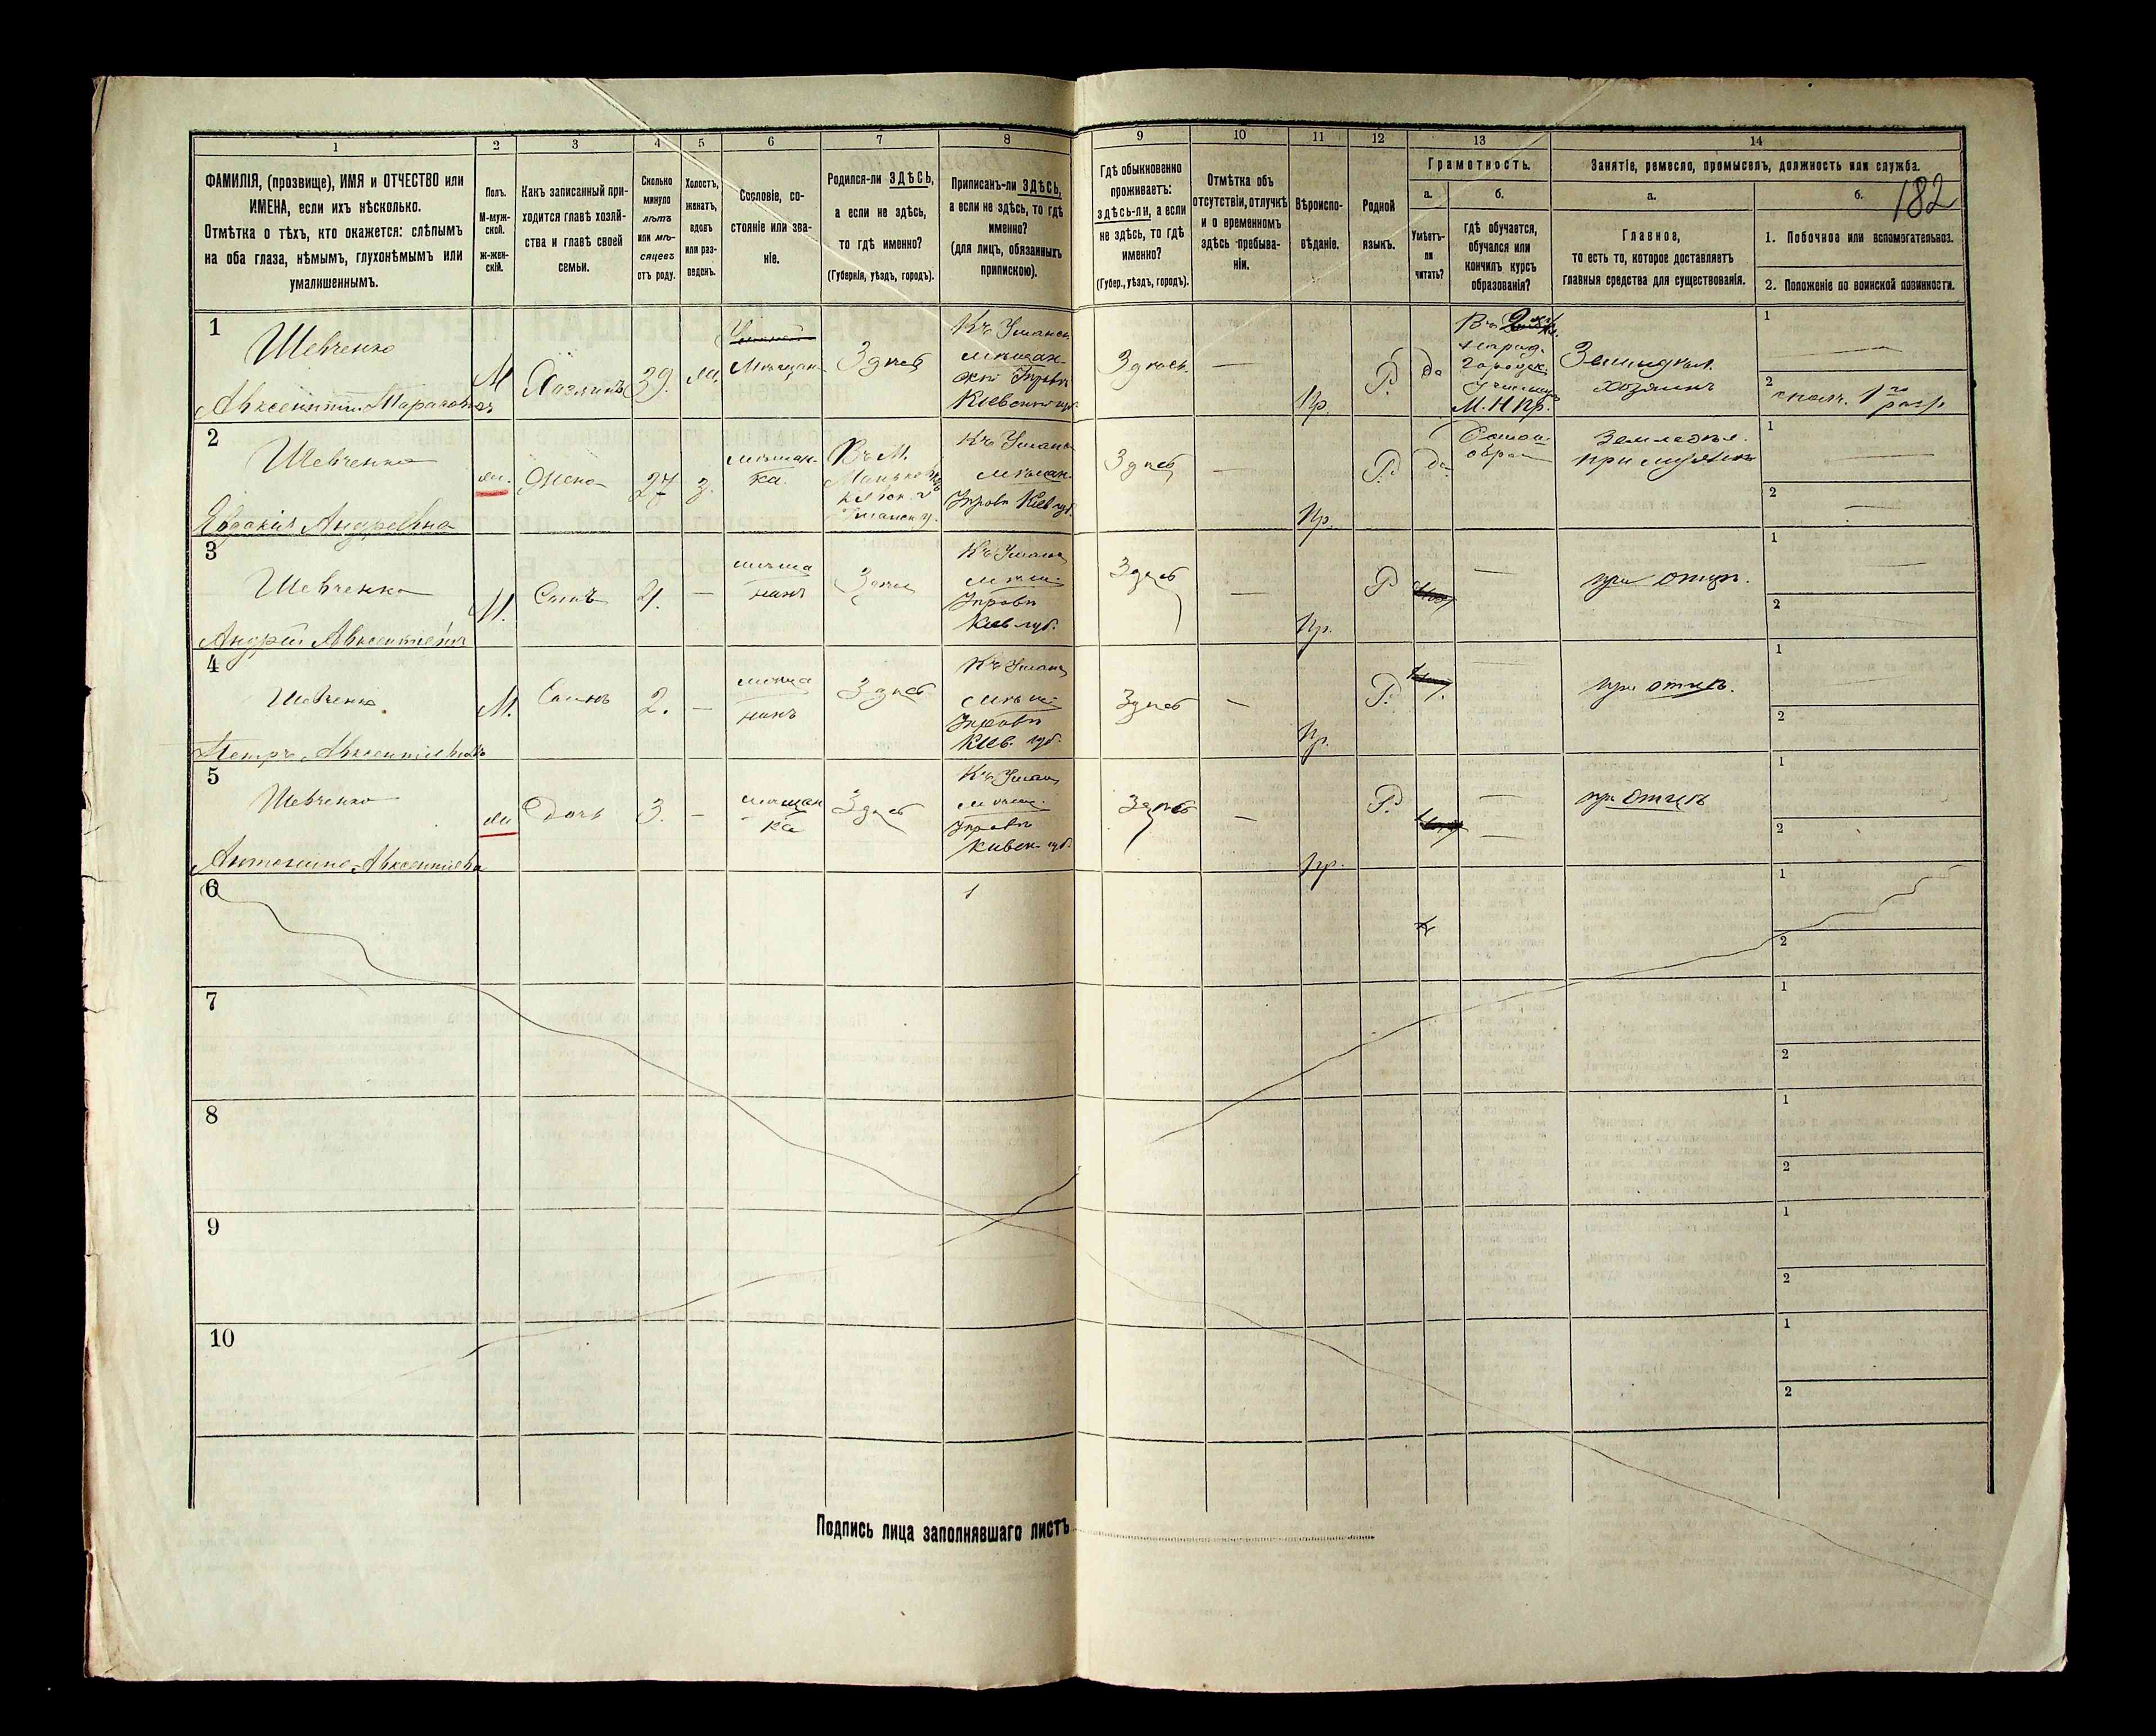 1
2
3
4
5
6
7
8
ФАМИЛІЯ, (прозвище), ИМЯ и ОТЧЕСТВО или
ИМЕНА, если ихъ нѣсколько.
Отмѣтка о тѣхъ, кто окажется: слѣпымъ
на оба глаза, нѣмымъ, глухонѣмымъ или
умалишеннымъ.
Полъ.
М-муж-
ской.
ж-жен-
скій.
Какъ записанный при-
ходится главѣ хозяй-
ства и главѣ своей
семьи.
Сколько
минуло
лѣтъ
или мѣ-
сяцевъ
отъ роду.
Холостъ,
женатъ,
вдовъ
или раз-
веденъ.
Сословіе, со-
стояніе или зва-
ніе.
Родился-ли ЗДѢСЬ,
а если не здѣсь,
то гдѣ именно?
(Губернія, уѣздъ, городъ).
Приписанъ-ли ЗДѢСЬ,
а если не здѣсь, то гдѣ
именно?
(для лицъ, обязанныхъ
припискою).
9
10
11
12
13
14
Гдѣ обыкновенно
проживаетъ:
здѣсь-ли, а если
не здѣсь, то гдѣ
именно?
(Губер., уѣздъ, городъ).
Отмѣтка объ
отсутствіи, отлучкѣ
и о временномъ
здѣсь пребыва-
ніи.
Вѣроиспо-
вѣданіе.
Родной
языкъ.
Грамотность.
а.
б.
Умѣетъ-
ли
читать?
Гдѣ обучается,
обучался или
кончилъ курсъ
образованія?
Занятіе, ремесло, промыселъ, должность или служба.
182
а.
б.
Главное,
то есть то, которое доставляетъ
главныя средства для существованія.
1. Побочное или вспомогательное.
2. Положеніе по воинской повинности.
1
Шевченко
Авксентій
М
Хозяинъ
39.
Мѣщан.
Здѣсь
Къ Уманск
мѣщан
Управѣ
Кіевской губ.
Здѣсь.
—
Пр.
Р.
да
Въ
Городск.
М. Н. Пр.
Земледѣл.
хозяинъ
1
—
2
1го разр.
2
Шевченко
Евдокія Андреевна
ж.
Жена
27
з.
мѣщан-
ка.
Въ М.
Маньковкѣ
Уманск. у.
Къ Уманс
мѣщан.
Управѣ Кіев губ.
Здѣсь
—
Пр.
Р.
да
Земледѣл.
при мужѣ
1
2
—
3
Шевченко
Андрій Авксентіев
М.
Сынъ
4.
—
мѣща
нинъ
Здѣсь
Къ Уманс
мѣщ.
Управѣ
Кіев губ.
Здѣсь
—
Пр.
Р
—
при отцѣ.
1
—
2
4
Шевченко
Петръ Авксентіевичъ
М.
Сынъ
2.
—
мѣща
нинъ
Здѣсь
Къ Уманс
мѣщ
Управѣ
Кіев. губ.
Здѣсь
—
Пр.
Р.
—
при отцѣ.
1
2
5
Шевченко
Антонина Авксентіева
ж
Дочь
3.
—
мѣщан
ка
Здѣсь
Къ Уман
мѣщ.
Управѣ
Кіевск губ.
Здѣсь
—
Пр.
Р.
—
при отцѣ
1
2
6
1
2
7
1
2
8
1
2
9
1
2
10
1
2
Подпись лица заполнявшаго листъ